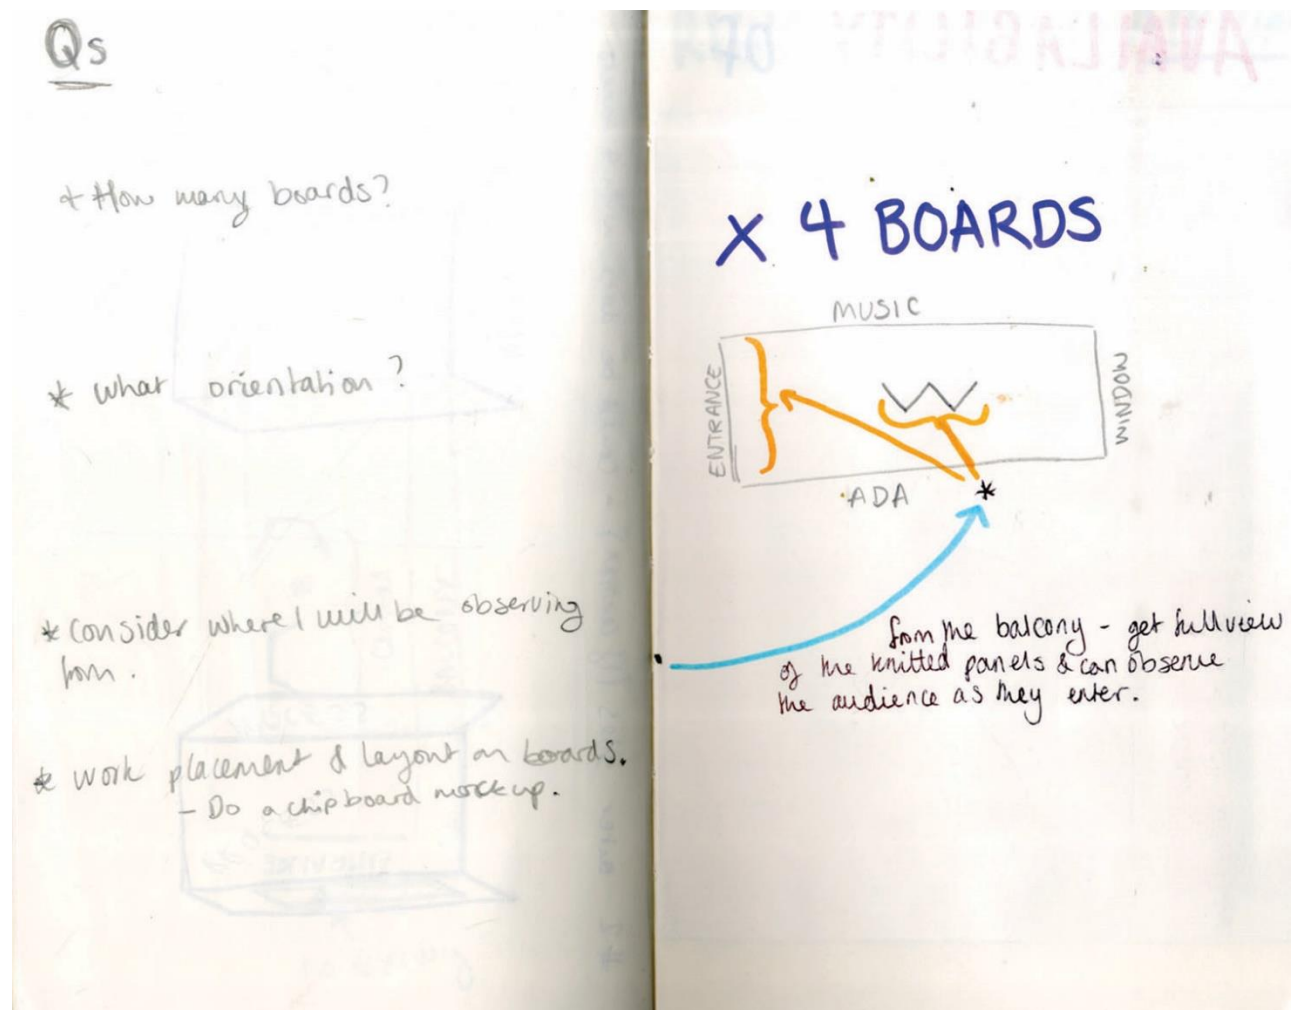 Qs
+ How many boards?
* what orientation?
* Consider where I will be observing
from.
* Work placement & layout on boards.
- Do a chipboard mockup.
X 4 BOARDS
MUSIC
ENTRANCE
WINDOW
ADA
*
from the balcony - get full view
of the knitted panels & can observe
the audience as they enter.